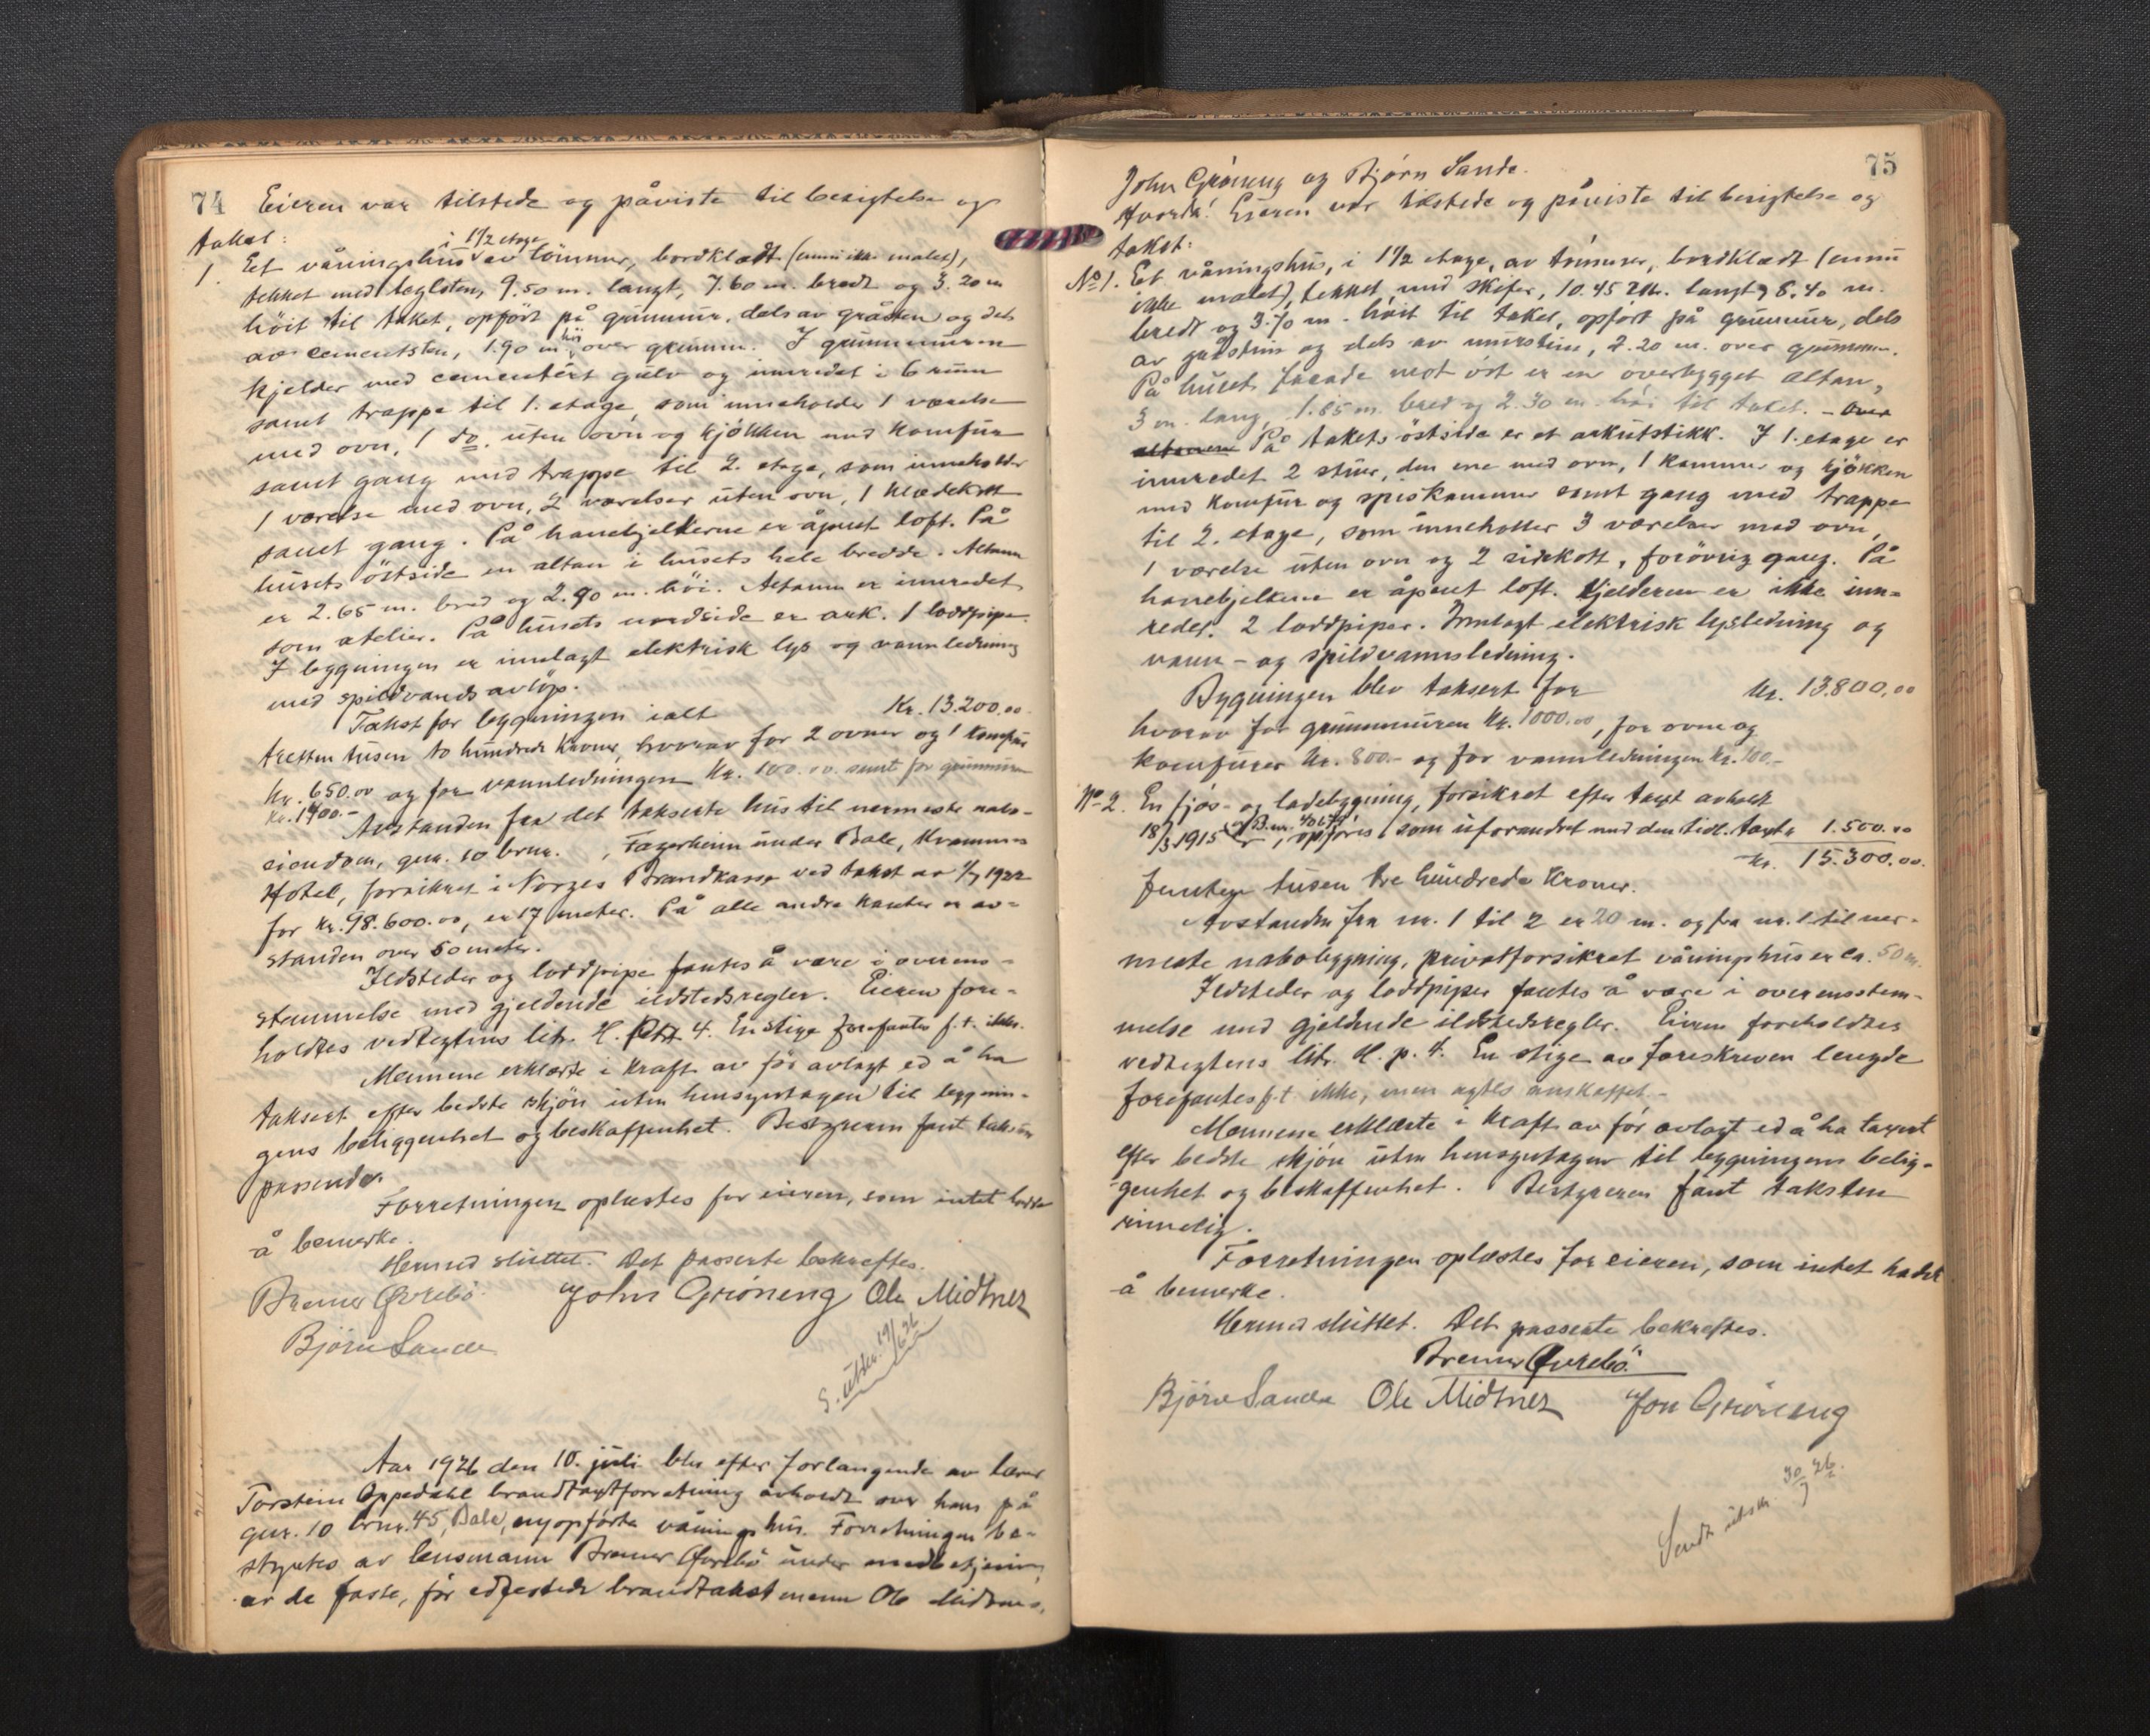 74
Eieren var tilstede og påviste til besigtelse og
takst:
i 1½ etage
1. Et våningshus av tømmer, bordklædt (ennu ikke malet),
tekket med teglsten, 9.50 m. langt, 7.60 m. bredt og 3.20 m
höit til taket, opfört på grunmur, dels av gråsten og dels
av cementsten, 1.90 m höi over grunnen. I grunnmuren
kjelder med cementert gulv og innredet i 6 rum
samt trappe til 1. etage, som inneholder 1 værelse
med ovn, 1 do. uten ovn og kjökken med komfur
samt gang med trappe til 2. etage, som inneholder
1 værelse med ovn, 2 værelser uten ovn, 1 klædekott
samt gang. På hanebjelkerne er åpent loft. På
husets östside en altan i husets hele bredde. Altanen
er 2.65 m. bred og 2.90 m. höi. Altanen er innredet
som atelier. På husets nordside er ark. 1 loddpipe.
I bygningen er innlagt elektrisk lys og vannledning
med spildvandsavlöp.
Takst for bygningen ialt Kr. 13.200.00
tretten tusen to hundrede kroner, hvorav for 2 ovner og 1 komfur
Kr. 650.00 og for vannledningen Kr. 100.00 samt for grunmuren
Kr. 1400.-
Avstanden fra det takserte hus til nermeste nabo-
eiendom, gnr. 10 brnr. , Fagerheim under Bale, Kvamme's
Hotel, forsikret i Norges Brandkasse ved takst av 1/7 1922
for Kr. 98.600.00, er 17 meter. På alle andre kanter er av-
standen over 50 meter.
Ildsteder og loddpipe fantes å være i overens-
stemmelse med gjeldende ildstedsregler. Eieren fore-
holdtes vedtegtens litr. H. pkt 4. En stige forefantes f.t. ikke.
Mennene erklærte i kraft av för avlagt ed å ha
taksert efter bedste skjön uten hensyntagen til bygnin-
gens beliggenhet og beskaffenhet. Bestyreren fant taksten
passende.
Forretningen oplæstes for eieren, som intet hadde
å bemerke.
Hermed sluttet. Det passerte bekreftes.
Bremer Øvrebö. John Gröneng Ole Midtnes
Bjørn Sande
S. utskr. 19/6 26
Aar 1926 den 10. juli blev efter forlangende av lærer
Torstein Oppedahl brandtaxtforretning avholdt over hans på
gnr. 10 brnr. 45, Bale, nyopförte våningshus. Forretningen be-
styrtes av lensmann Bremer Øvrebö under medbetjening
av de faste, för edfestede brandtakstmenn Ole Midtnes,
75
John Gröneng og Bjørn Sande.
Hvorda! Eieren var tilstede og påviste til besigtelse og
takst:
No 1. Et våningshus, i 1½ etage, av tömmer, bordklædt (ennu
ikke malet), tekket med skifer, 10.45 m. langt, 8.40 m.
bredt og 3.70 m. höit til taket, opfört på grunmur, dels
av gråstein og dels av murstein, 2.20 m. over grunnen.
På husets facade mot öst er en overbygget altan,
3 m. lang, 1.85 m. bred og 2.30 m. höi til taket. - Over
altanen På takets östside er et arkutstikk. I 1. etage er
innredet 2 stuer, den ene med ovn, 1 kammer og kjökken
med komfur og spiskammer samt gang med trappe
til 2. etage, som inneholder 3 værelser med ovn,
1 værelse uten ovn og 2 sidekott, forövrig gang. På
hanebjelkene er åpent loft. Kjelderen er ikke inn-
redet. 2 loddpiper. Innlagt elektrisk lysledning og
vann- og spildvannsledning.
Bygningen blev taksert for Kr. 13.800,00
hvorav for grunnmuren Kr. 1000.00, for ovne og
komfurer Kr. 800.- og for vannledningen Kr. 100.-
No 2. En fjös- og ladebygning, forsikret efter taxt avholdt
18/3 1915, opföres som uforandret med den tidl. taxt 1.500.00
Kr. 15.300.00.
femten tusen tre hundrede kroner.
Avstanden fra nr. 1 til 2 er 20 m. og fra nr. 1 til nær-
meste nabobygning, privatforsikret våningshus er ca. 50 m.
Ildsteder og loddpiper fantes å være i overensstem-
melse med gjeldende ildstedsregler. Eieren foreholdtes
vedtegtens litr. H. p. 4. En stige av foreskreven lengde
forefantes f.t ikke, men agtes anskaffet.-
Mennene erklærte i kraft av för avlagt ed å ha taxert
efter bedste skjön uten hensyntagen til bygningens belig-
genhet og beskaffenhet. Bestyreren fant taksten
rimelig.
Forretningen oplæstes for eieren, som intet hadde
å bemerke.
Hermed sluttet. Det passerte bekreftes.
Bremer Øvrebö.
Bjørn Sande Ole Midtnes Jon Gröneng
Sendt utskr. 30/7 26.